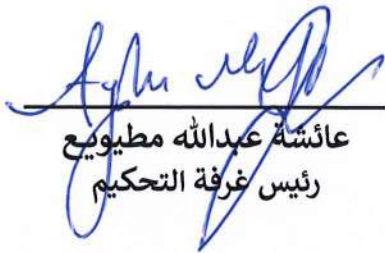 عائشة عبدالله مطيويع
رئيس غرفة التحكيم